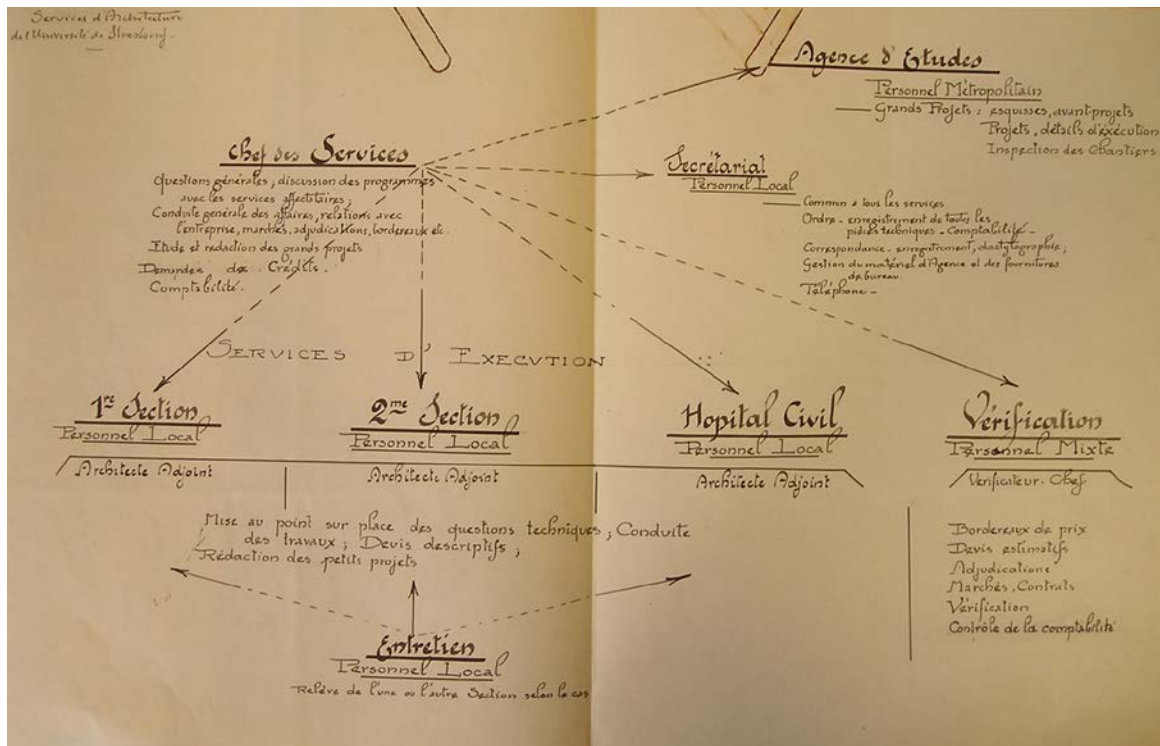 Services d'Architecture
de l'Université de Strasbourg.
Agence d'Etudes
Personnel Métropolitain
Grands Projets : esquisses, avant-projets
Projets, détails d'exécution
Inspection des Chantiers
Chef des Services
Questions générales, discussion des programmes
avec les services affectataires ;
Conduite générale des affaires, relations avec
l'entreprise, marchés, adjudications, bordereaux etc.
Etude et rédaction des grands projets
Demandes de Crédits.
Comptabilité.
Secrétariat
Personnel Local
Commun à tous les services
Ordre - enregistrement de toutes les
pièces techniques - Comptabilité -
Correspondance - enregistrement, dactylographie ;
Gestion du matériel d'Agence et des fournitures
de bureau.
Téléphone -
SERVICES D'EXECUTION
1re Section
Personnel Local
Architecte Adjoint
2me Section
Personnel Local
Architecte Adjoint
Hopital Civil
Personnel Local
Architecte Adjoint
Vérification
Personnel Mixte
Vérificateur-Chef
Mise au point sur place des questions techniques ; Conduite
des travaux ; Devis descriptifs ;
Rédaction des petits projets
Bordereaux de prix
Devis estimatifs
Adjudications
Marchés, Contrats
Vérification
Contrôle de la comptabilité
Entretien
Personnel Local
Relève de l'une ou l'autre Section selon le cas